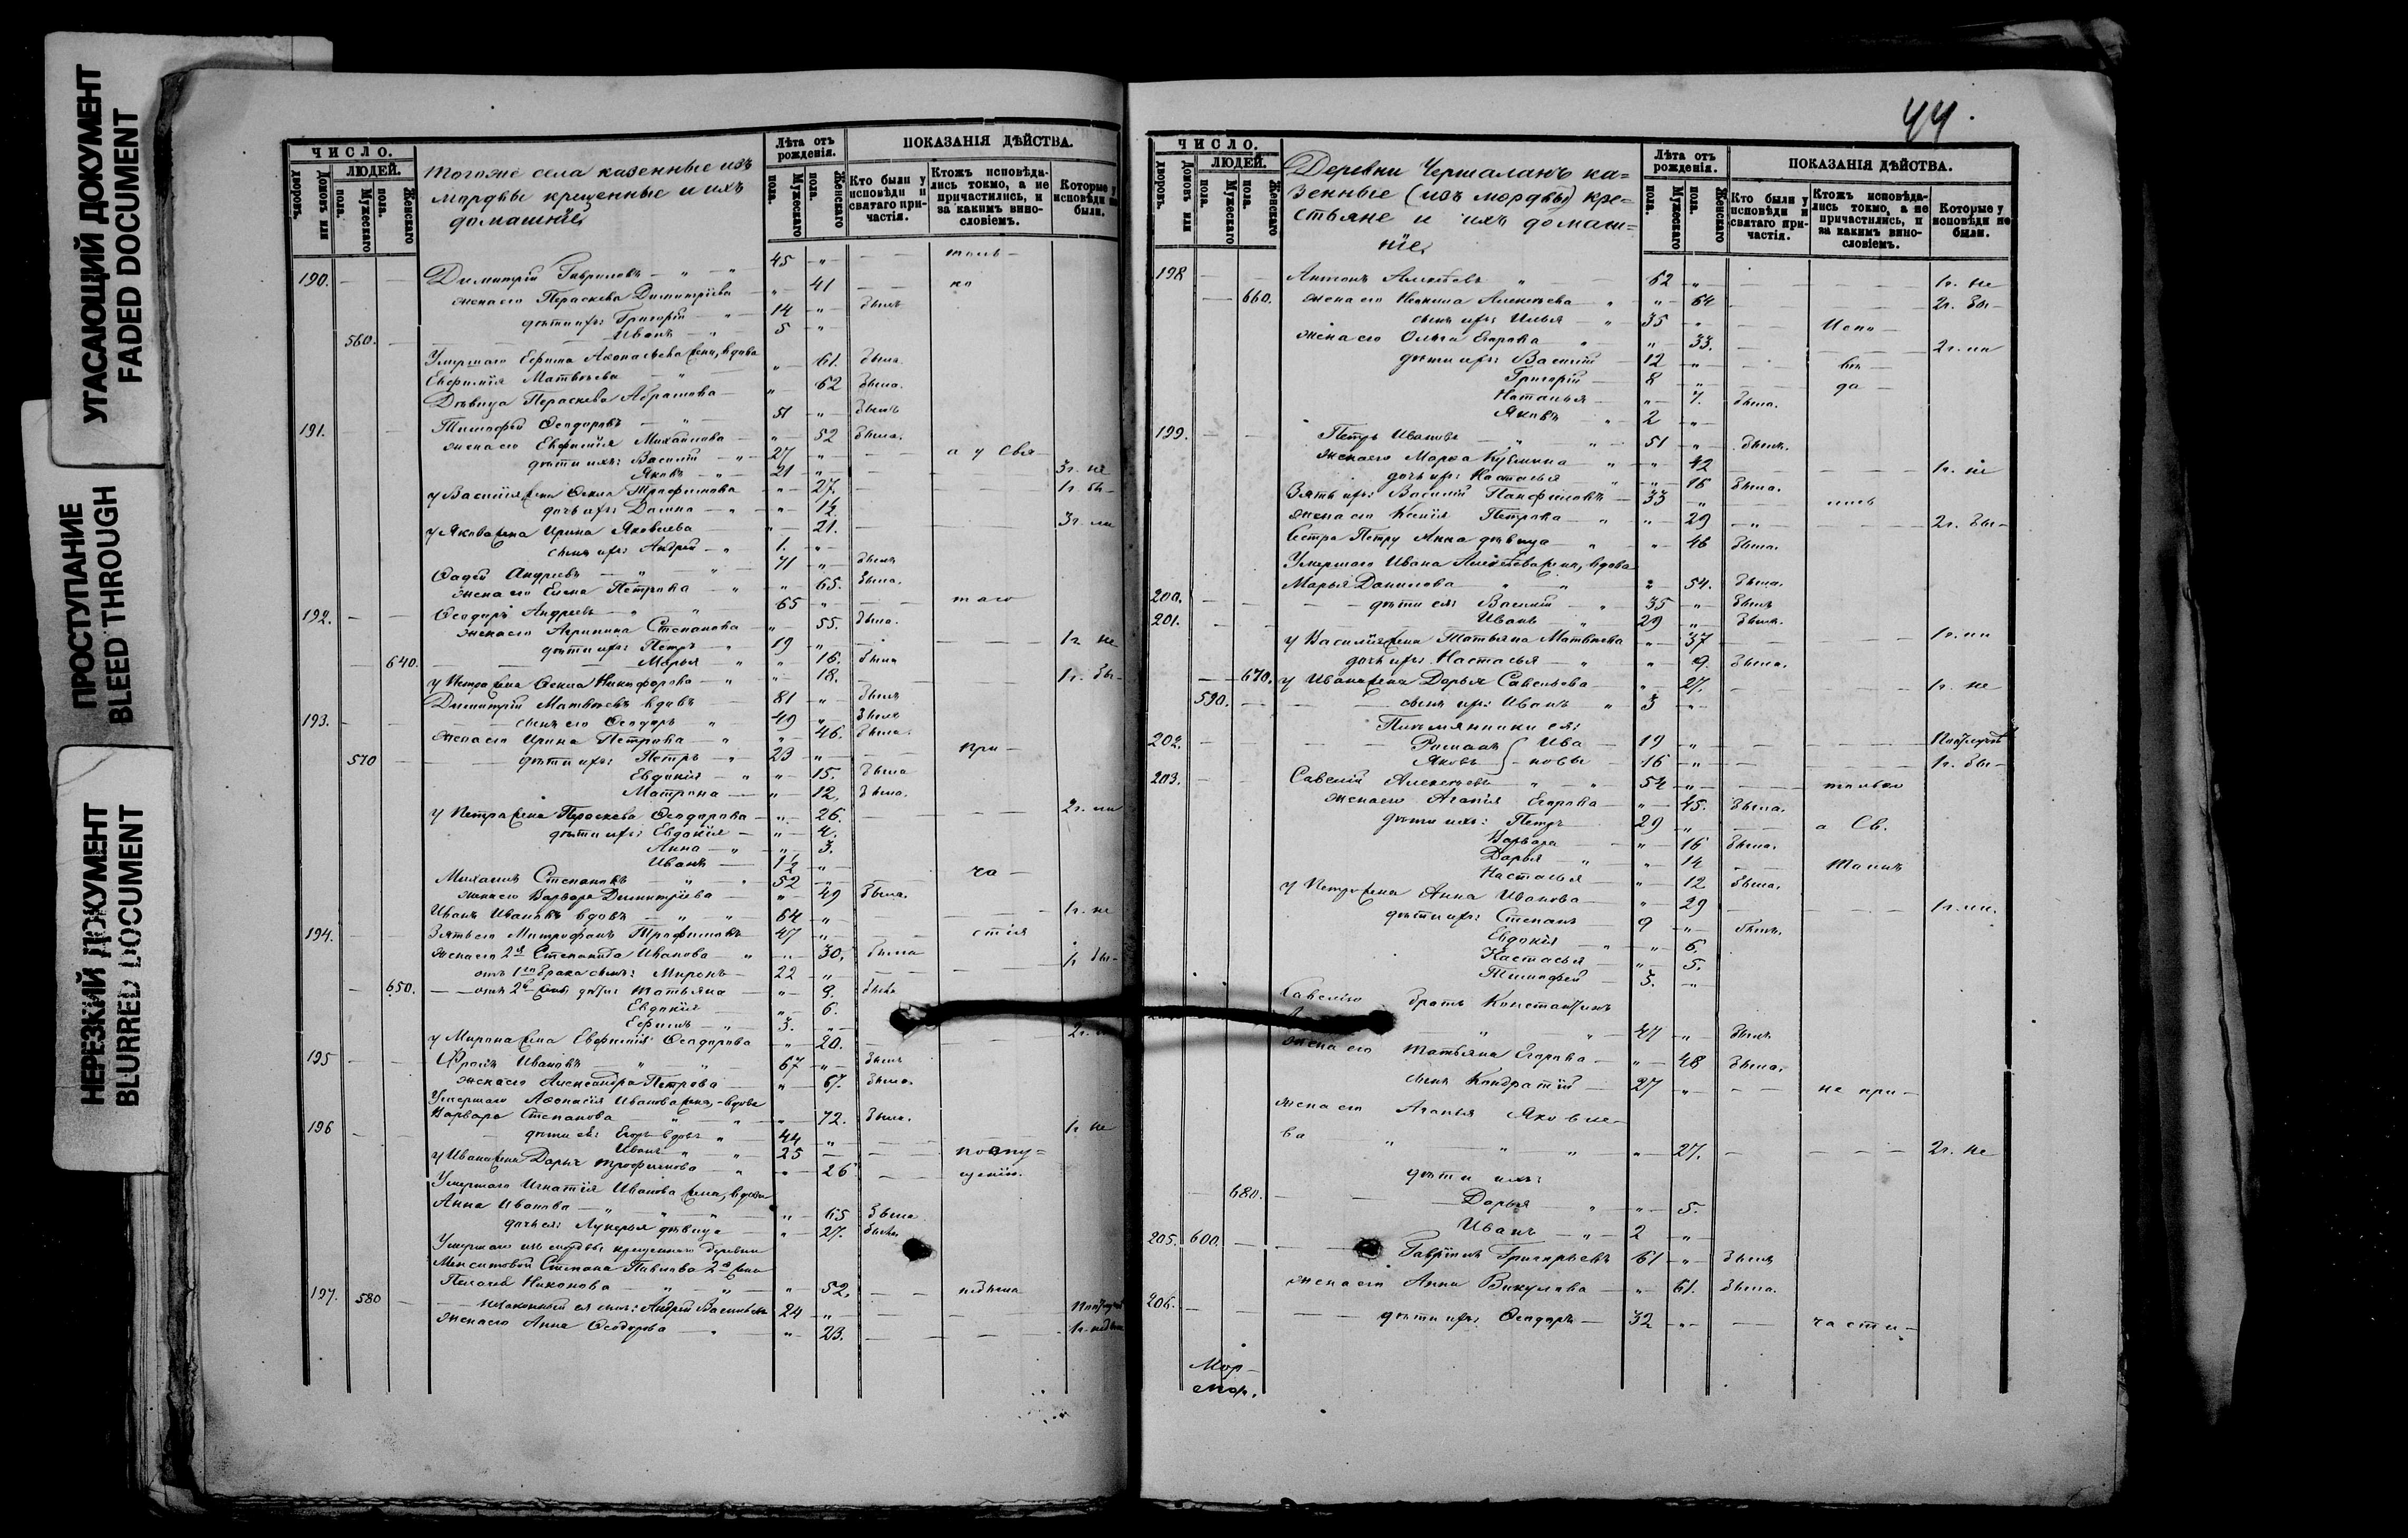 УГАСАЮЩИЙ ДОКУМЕНТ
FADED DOCUMENT
ПРОСТУПАНИЕ
BLEED THROUGH
НЕРЕЗКИЙ ДОКУМЕНТ
BLURRED DOCUMENT
ЧИСЛО.
Домовъ или дворовъ.
ЛЮДЕЙ.
Мужескаго пола.
Женскаго пола.
Тогоже села казенные изъ
мордвы крещенные и ихъ
домашніе
Лѣта отъ рожденія.
Мужескаго пола.
Женскаго пола.
ПОКАЗАНІЯ ДѢЙСТВА.
Кто были у исповѣди и святаго причастія.
Ктожъ исповѣдались токмо, а не причастились, и за какимъ винословіемъ.
Которые у исповѣди не были.
190. Димитрій Гавриловъ 45 толь-
жена его Параскева Димитріева 41 ко
дѣти ихъ: Григорій 14 былъ
560. Иванъ 5
Умершаго Ефима Афонасьева жена, вдова
Евфимія Матвѣева 61. была.
Дѣвица Параскева Абрамова 62 была.
191. Тимофей Ѳеодоровъ 51 былъ
жена его Евфимія Михаилова 52 была.
дѣти ихъ: Василій 27 а у Свя-
Яковъ 21 3г. не
у Василія жена Ѳекла Трофимова 27. 1г. бы-
дочь ихъ: Домна 1½
у Якова жена Ирина Яковлева 21. 3г. ли
сынъ ихъ: Андрей 1.
Фадей Андреевъ 71 былъ
жена его Елена Петрова 65. была.
192. Ѳеодоръ Андреевъ 65 таго
жена его Агрипина Степанова 55. была.
дѣти ихъ: Петръ 19 1г. не
640. Марья 16. была
у Петра жена Ѳекла Никифорова 18. 1г. бы-
Димитрій Матвѣевъ вдовъ 81 былъ
193. сынъ его Ѳеодоръ 49 былъ
жена его Ирина Петрова 46. была.
570 дѣти ихъ: Петръ 23 при-
Евдокія 15. была
Матрона 12. была.
у Петра жена Параскева Ѳеодорова 26. 2г. ли
дѣти ихъ: Евдокія 4.
Анна 3.
Иванъ ½
Михаилъ Степановъ 52 ча-
жена его Варвара Димитріева 49 была.
Иванъ Ивановъ вдовъ 64 1г. не
194. Зять его Митрофанъ Трофимовъ 47 стія
жена его 2я Степанида Иванова 30. была
отъ 1го брака сынъ: Миронъ 22 1г. бы-
650. отъ 2й жены дѣти: Татьяна 9. была
Евдокія 6.
Ефимъ 3.
у Мирона жена Евфимія Ѳеодорова 20. 2г.
195 Фролъ Ивановъ 67 былъ
жена его Александра Петрова 67. была.
Умершаго Афонасія Иванова жена, вдова
Варвара Степанова 72. была.
196 дѣти ея: Егоръ вдовъ 44 1г. не
Иванъ 25 поопу=
у Ивана жена Дарья Трофимова 26 щенію.
Умершаго Игнатія Иванова жена, вдова
Анна Иванова 65 была
дочь ея: Лукерья дѣвица 27. была
Умершаго изъ мордвы крещеннаго деревни
Степана Павлова 2я жена
Пелагея Никонова 52. небыла
197. 580 незаконный ея сынъ: Андрей Васильевъ 24
жена его Анна Ѳеодорова 23. 1г. небыла
44.
ЧИСЛО.
Домовъ или дворовъ.
ЛЮДЕЙ.
Мужескаго пола.
Женскаго пола.
Деревни Чермаланъ ка=
зенные (изъ мордвы) кре=
стьяне и ихъ домаш=
ніе.
Лѣта отъ рожденія.
Мужескаго пола.
Женскаго пола.
ПОКАЗАНІЯ ДѢЙСТВА.
Кто были у исповѣди и святаго причастія.
Ктожъ исповѣдались токмо, а не причастились, и за какимъ винословіемъ.
Которые у исповѣди не были.
198 Антонъ Алексѣевъ 62 1г. не
660. жена его Алексѣева 64 2г. бы-
сынъ ихъ: Илья 35 Испо-
жена его Ольга Егорова 33. 2г. ли
дѣти ихъ: Василій 12 вѣ-
Григорій 8 да-
Наталья 7. была.
Яковъ 2
199. Петръ Ивановъ 51 былъ.
жена его Марѳа Кузмина 42 1г. не
дочь ихъ: Настасья 16 была.
Зять ихъ: Василій Панфиловъ 33 лись
жена его Ксенія Петрова 29 2г. бы-
Сестра Петру Анна дѣвица 46 была.
Умершаго Ивана Алексѣева жена, вдова
Марья Данилова 54. была.
200. дѣти ея: Василій 35 былъ
201. Иванъ 29 былъ.
у Василія жена Татьяна Матвѣева 37 1г. ли
дочь ихъ: Настасья 9. была.
670. у Ивана жена Дарья Савельева 27. 1г. не
590. сынъ ихъ: Иванъ 3
Племянники ея:
202. Романъ } Ива 19
Яковъ } -новы 16 1г. бы-
203. Савелій Алексѣевъ 54 только
жена его Агафія Егорова 45. была.
дѣти ихъ: Петръ 29 а Св.
Варвара 16 была.
Дарья 14 Таинъ
Настасья 12 была.
у Петра жена Анна Иванова 29 1г. ли.
дѣти ихъ: Степанъ 9 былъ.
Евдокія 6.
Настасья 5.
Тимофей 3.
Савелію братъ Константинъ
47 былъ
жена его Татьяна Егорова 48 была.
сынъ Кондратій 27 не при-
жена его Агафья Яковле-
ва 27. 2г. не
дѣти ихъ:
680. Дарья 5.
Иванъ 2
205. 600. Гавріилъ Григорьевъ 61 былъ
жена его Анна Викулова 61. была.
206. дѣти ихъ: Ѳеодоръ 32 части-